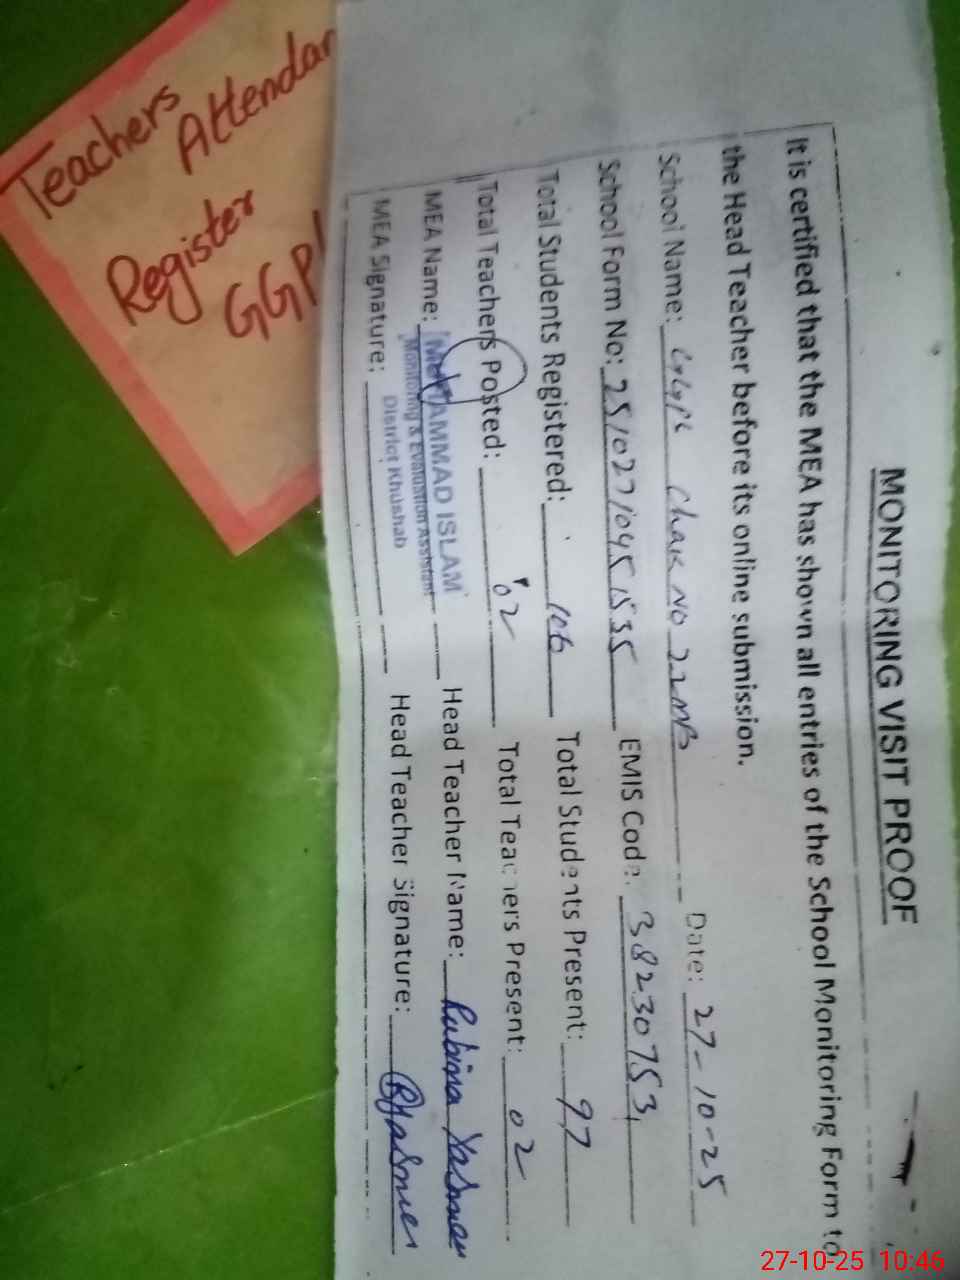 MONITORING VISIT PROOF
It is certified that the MEA has shown all entries of the School Monitoring Form to
the Head Teacher before its online submission.
School Name: GGPS Chak No 22MB Date: 27-10-25
School Form No: 25102710451535 EMIS Code: 38230753
Total Students Registered: 106 Total Students Present: 97
Total Teachers Posted: 02 Total Teachers Present: 02
MEA Name: MUHAMMAD ISLAM Head Teacher Name: Rubina Yasmeen
Monitoring & Evaluation Assistant
District Khushab
MEA Signature: Head Teacher Signature: RYasmeen
Teachers
Attendan
Register
GGP
27-10-25 10:46